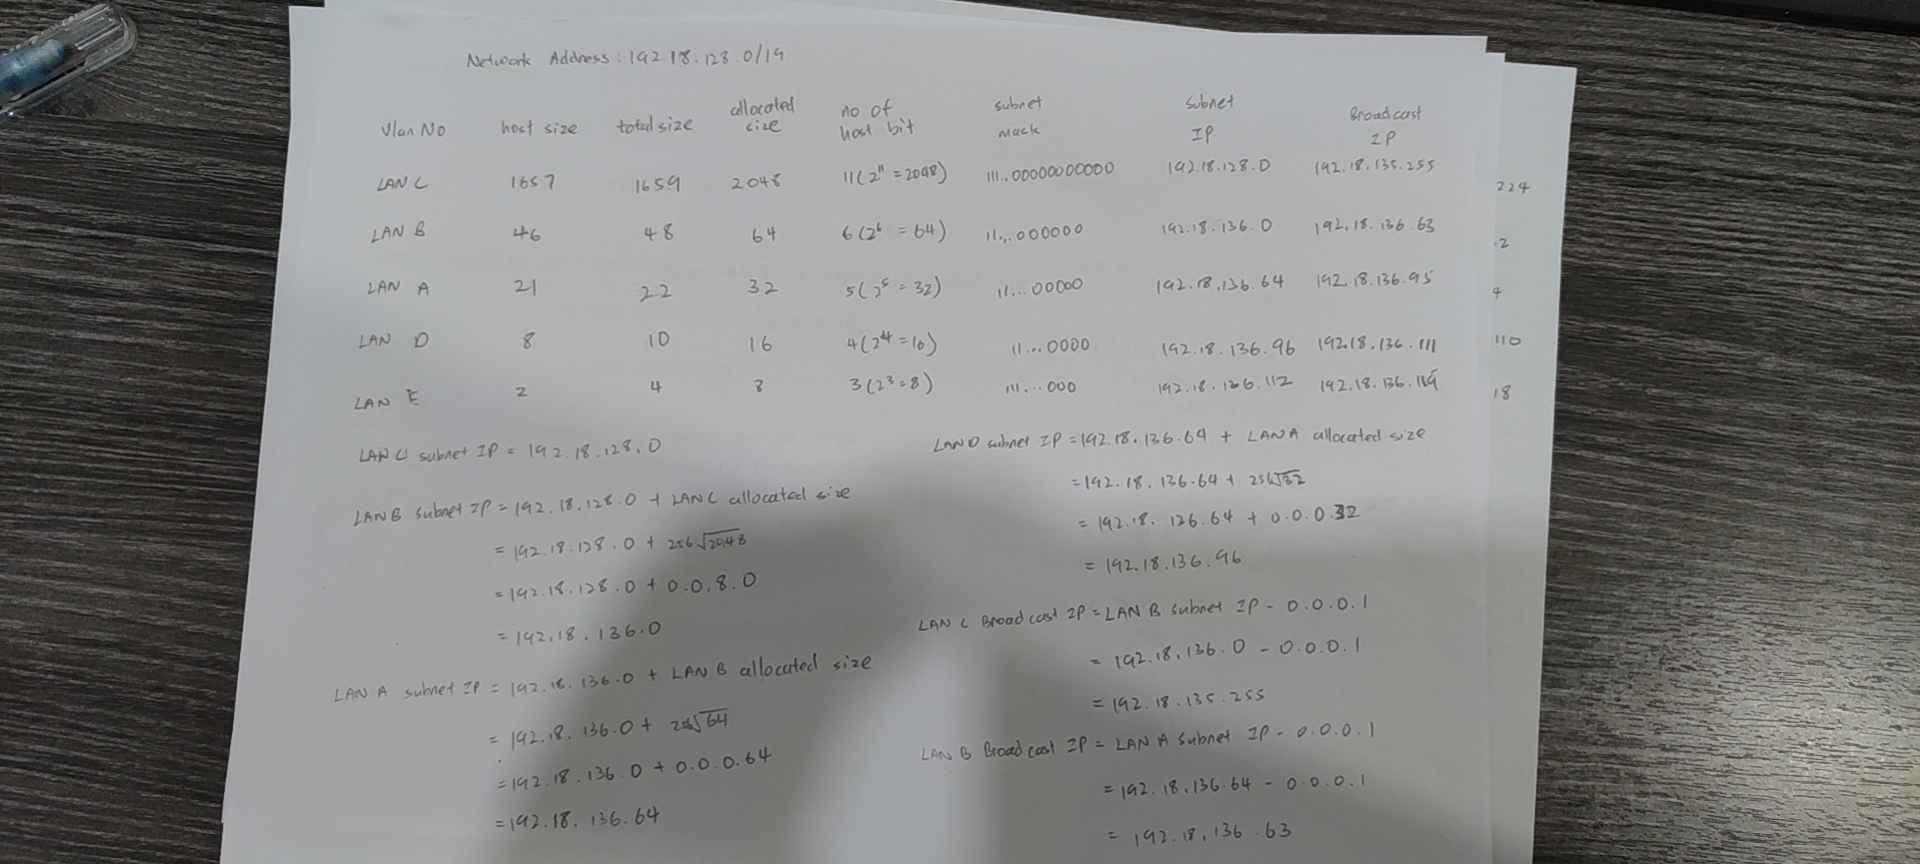 Network Address : 192.18.128.0/19
Vlan No host size total size allocated size no of host bit subnet mack Subnet IP Broadcast IP
LAN C 1657 1659 2048 11(2¹¹ = 2048) 111..00000000000 192.18.128.0 192.18.135.255
LAN B 46 48 64 6(2⁶ = 64) 11...000000 192.18.136.0 192.18.136.63
LAN A 21 22 32 5(2⁵ = 32) 11...00000 192.18.136.64 192.18.136.95
LAN D 8 10 16 4(2⁴ = 16) 11...0000 192.18.136.96 192.18.136.111
LAN E 2 4 8 3(2³ = 8) 111...000 192.18.136.112 192.18.136.119
LAN C subnet IP = 192.18.128.0
LAN B subnet IP = 192.18.128.0 + LAN C allocated size
= 192.18.128.0 + 256√2048
= 192.18.128.0 + 0.0.8.0
= 192.18.136.0
LAN A subnet IP = 192.18.136.0 + LAN B allocated size
= 192.18.136.0 + 256√64
= 192.18.136.0 + 0.0.0.64
= 192.18.136.64
LAN D subnet IP = 192.18.136.64 + LAN A allocated size
= 192.18.136.64 + 256√32
= 192.18.126.64 + 0.0.0.32
= 192.18.136.96
LAN C Broadcast IP = LAN B subnet IP - 0.0.0.1
= 192.18.136.0 - 0.0.0.1
= 192.18.135.255
LAN B Broadcast IP = LAN A subnet IP - 0.0.0.1
= 192.18.136.64 - 0.0.0.1
= 192.18.136.63
224
.2
4
110
18